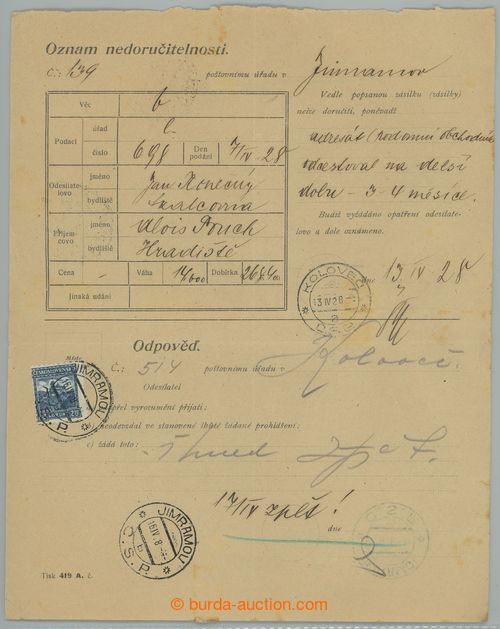 Oznam nedoručitelnosti.
Č.: 139 poštovnímu úřadu v Jimramov
Vedle popsanou zásilku (zásilky)
nelze doručiti, poněvadž
adresát (rodomní obchodník
odcestoval na delší
dobu – 3-4 měsíce.
Budiž vyžádáno opatření odesílate-
lovo a dole oznámeno.
dne 13 IV 28
Věc b
Podací úřad
číslo 698 Den podání 7/IV - 28
Odesílate-lovo jméno Jan Konečný
bydliště
Příjem-covo jméno Alois Pouch
bydliště Hradiště
Cena – Váha Dobírka
Jinaká udání
KOLOVEČ
13 IV 28
Odpověď.
Č.: 514 poštovnímu úřadu v Kolovci.
Odesílatel
vyrozumění přijati;
neodevzdal ve stanovené lhůtě žádané prohlášení;
c) žádá toto: ihned zpět.
17/IV zpět!
dne
JIMRAMOV
Č.S.P.
JIMRAMOV
16 IV 28
Č.S.P.
Tisk 419 A. č.
© burda-auction.com